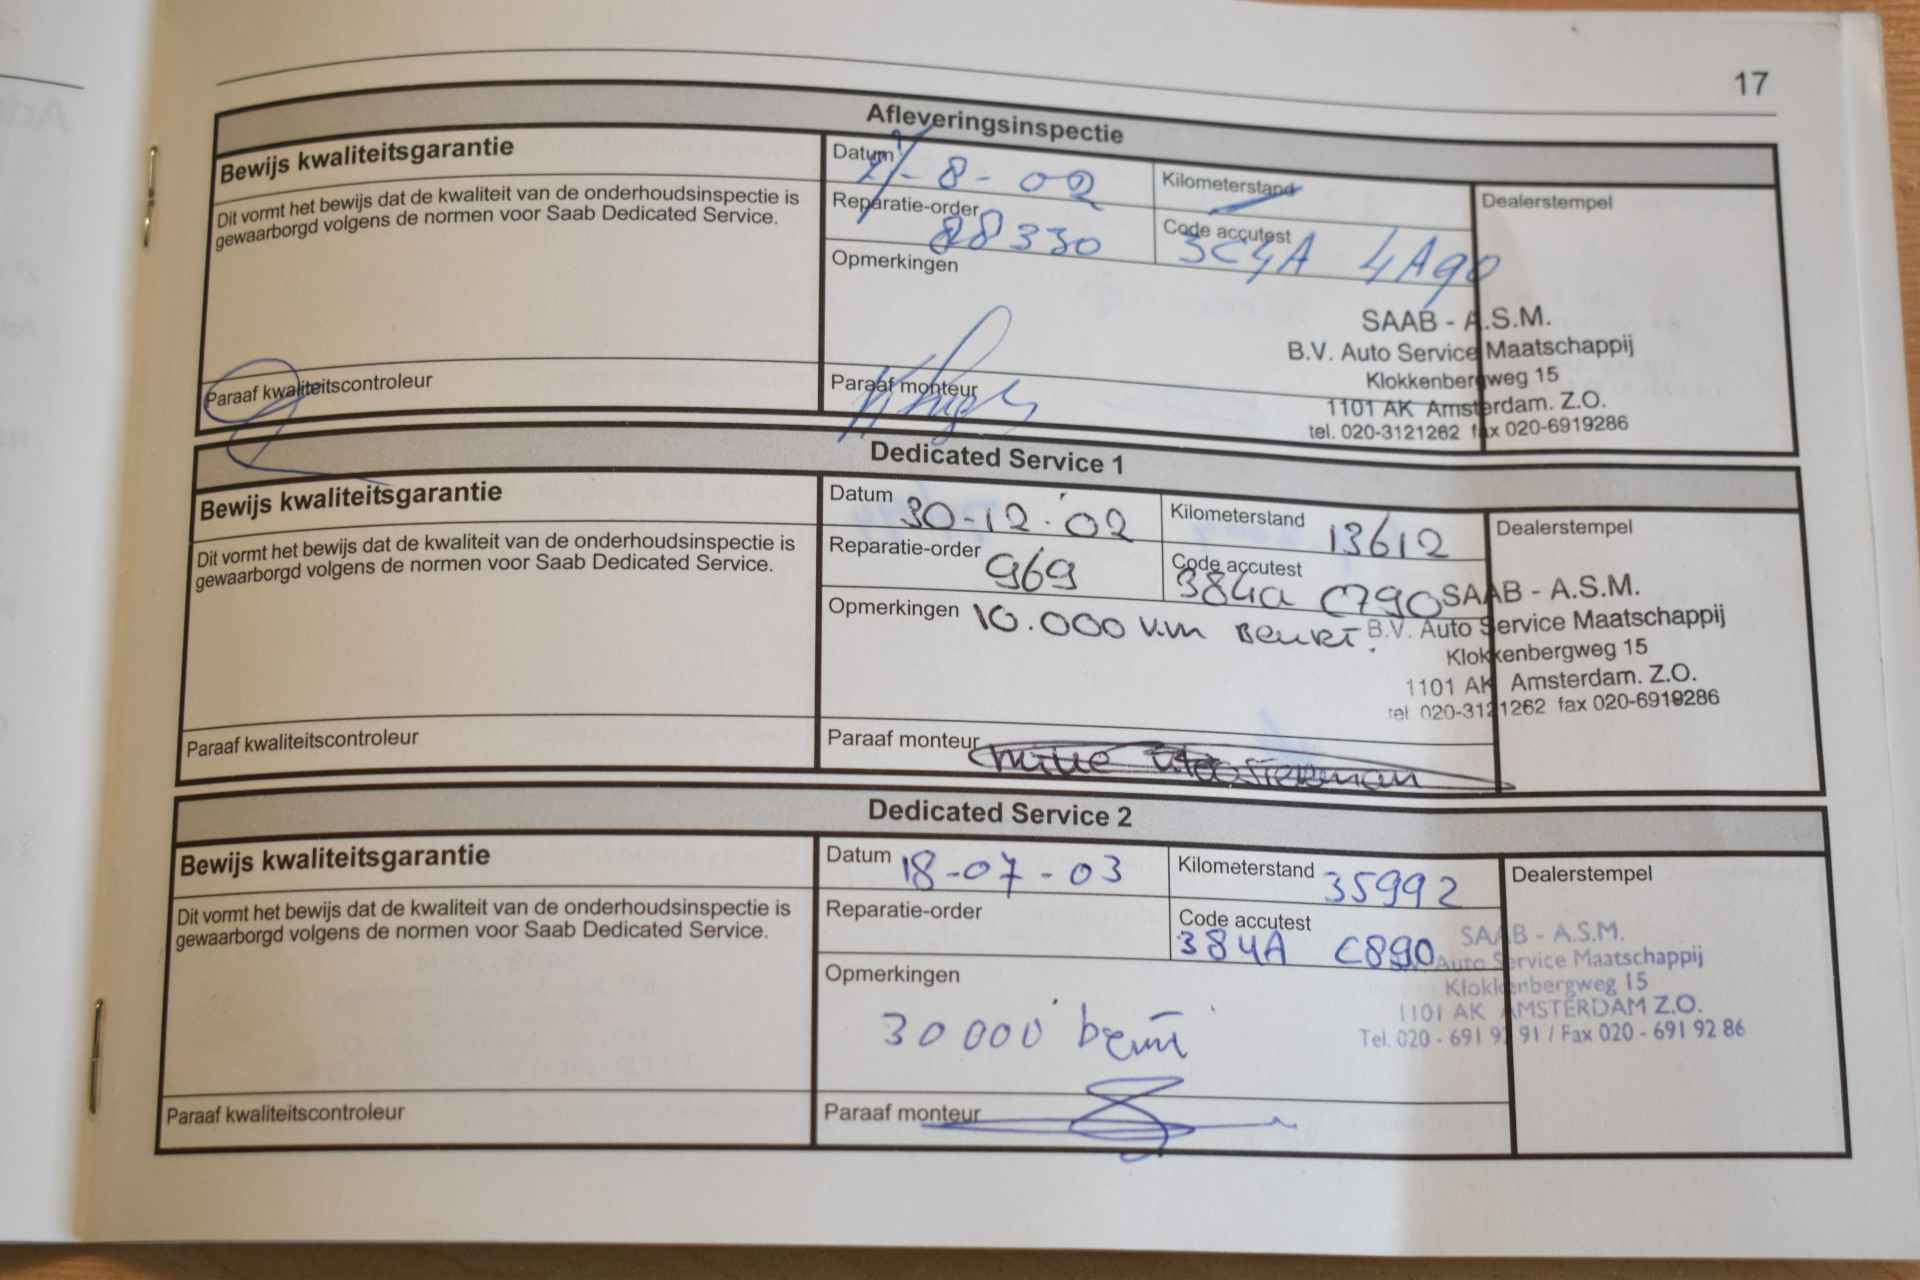 17
Afleveringsinspectie
Bewijs kwaliteitsgarantie
Dit vormt het bewijs dat de kwaliteit van de onderhoudsinspectie is
gewaarborgd volgens de normen voor Saab Dedicated Service.
Paraaf kwaliteitscontroleur
Datum -8-02
Kilometerstand
Reparatie-order 88330
Code accutest 3C4A 4A90
Opmerkingen
Paraaf monteur
Dealerstempel
SAAB - A.S.M.
B.V. Auto Service Maatschappij
Klokkenbergweg 15
1101 AK Amsterdam. Z.O.
tel. 020-3121262 fax 020-6919286
Dedicated Service 1
Bewijs kwaliteitsgarantie
Dit vormt het bewijs dat de kwaliteit van de onderhoudsinspectie is
gewaarborgd volgens de normen voor Saab Dedicated Service.
Paraaf kwaliteitscontroleur
Datum 30-12-'02
Kilometerstand 13612
Reparatie-order 969
Code accutest 384a C790
Opmerkingen 10.000 km Beurt.
Paraaf monteur
Dealerstempel
SAAB - A.S.M.
B.V. Auto Service Maatschappij
Klokkenbergweg 15
1101 AK Amsterdam. Z.O.
tel 020-3121262 fax 020-6919286
Dedicated Service 2
Bewijs kwaliteitsgarantie
Dit vormt het bewijs dat de kwaliteit van de onderhoudsinspectie is
gewaarborgd volgens de normen voor Saab Dedicated Service.
Paraaf kwaliteitscontroleur
Datum 18-07-03
Kilometerstand 35992
Reparatie-order
Code accutest 384A C890
Opmerkingen
30000 beurt
Paraaf monteur
Dealerstempel
SAAB - A.S.M.
Auto Service Maatschappij
Klokkenbergweg 15
1101 AK AMSTERDAM Z.O.
Tel. 020 - 691 92 91 / Fax 020 - 691 92 86